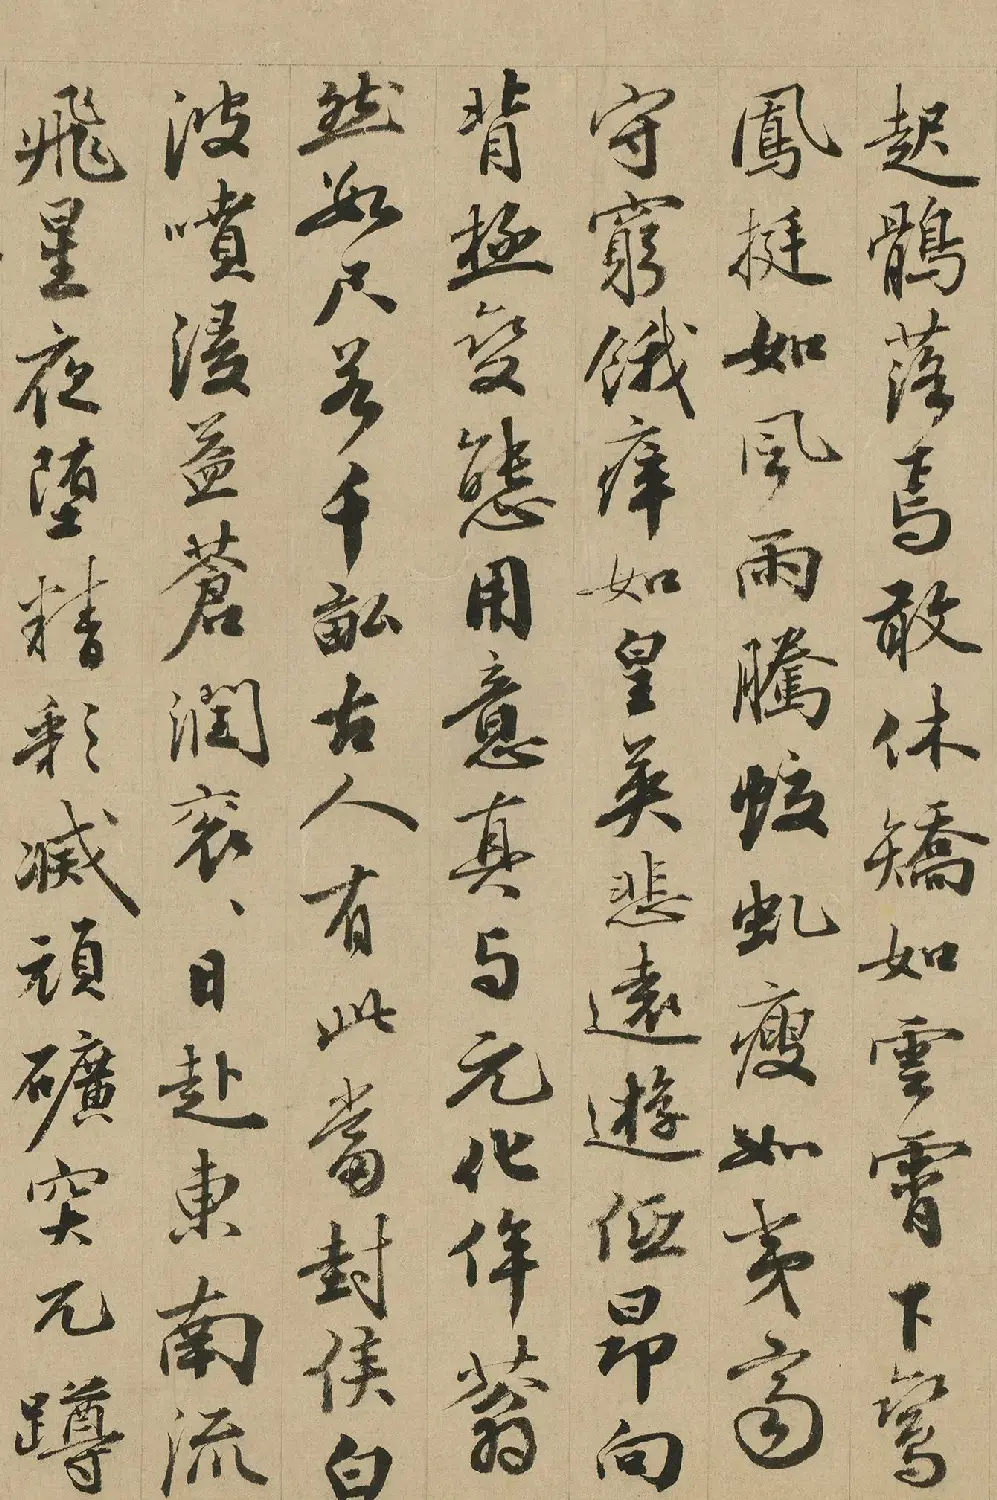 起鶻落焉敢休矯如雲霄下鸞
鳳挺如風雨騰蛟虬瘦如夷齊
守窮餓癯如皇英悲遠遊低昂向
背極變態用意真與元化侔蓊
然數尺若千畝古人有此當封侯白
波噴浸益蒼潤衮、日赴東南流
飛星夜堕精彩滅頑礦突兀蹲